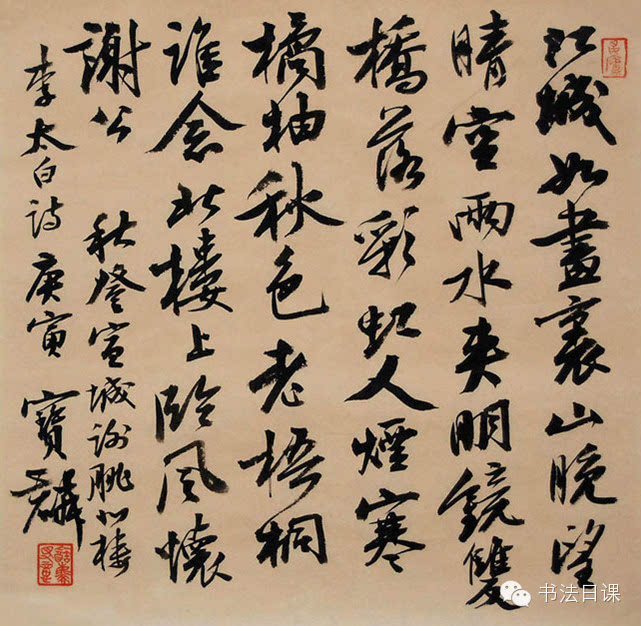 江城如畫裏山晚望
晴空雨水夹明鏡雙
橋落彩虹人煙寒
橘柚秋色老梧桐
誰念此楼上臨风懷
謝公 秋登宣城谢朓北楼
李太白诗 庚寅 寶麟
书法日课